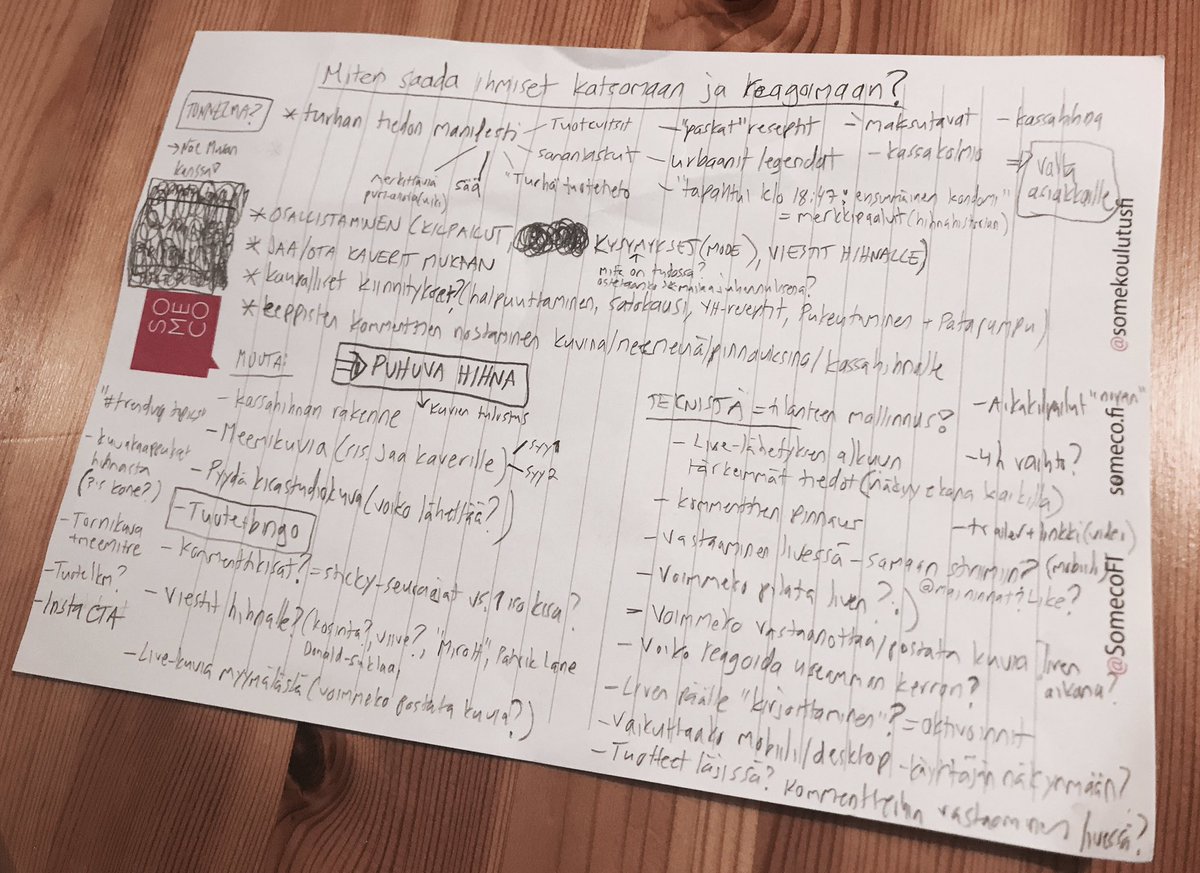 Miten saada ihmiset katsomaan ja reagoimaan?
TUNNELMA?
→ Noe Mukan kanssa
* turhan tiedon manifesti
- Tuotevitsit
- sananlaskut
- "Turha" tuotetieto
sää
merkittäviä
- "paskat" reseptit
- maksutavat
- kassahihna
- urbaanit legendat
- kassakolmio
⇒ valta asiakkaille
- "tapahtui klo 18:47: ensimmäinen kondomi"
= merkkipaalut (hihnahistorian)
* OSALLISTAMINEN (KILPAILUT, KYSYMYKSET (MODE), VIESTIT HIHNALLE)
* JAA/OTA KAVERIT MUKAAN
mitä on tulossa?
ostetaanko
* kaupalliset kiinnitykset? (halpuuttaminen, satokausi, YH-reseptit, Pukeutuminen + Patarumpu)
* eeppisten kommenttien nostaminen kuvina/meemeinä/pinnauksina/kassahihnalle
SO
ME
CO
MUUTA:
PUHUVA HIHNA
↳ kuvien tulostus
"#trending topics"
- kassahihnan rakenne
- kuvakaappaukset hihnasta
- Meemikuvia (sis. jaa kaverille)
- syy 1
- syy 2
- Pyydä kisastudiokuva (voiko lähettää?)
- Tuotebingo
- Tornikuva + meemitre
- kommenttikisat? = sticky-seuraajat vs. 1 iso kisa?
- Tuotelkm?
- Viestit hihnalle? (kosinta?, viive?, "Miro H", Patrik Laine
Donald-suklaa,
- Insta CTA
- Live-kuvia myymälästä (voimmeko postata kuvia?)
TEKNISTÄ = tilanteen mallinnus?
- Aikakilpailut "nyyan"
- Live-lähetyksen alkuun tärkeimmät tiedot (näkyy ekana kaikilla)
- 4h vaihto?
- kommenttien pinnaus
- traileri + linkki (video)
- vastaaminen livessä - samaan striimiin? (mobiili)
- Voimmeko pilata liven? :)
@maininnat? Like?
= Voimmeko vastaanottaa/postata kuvia liven aikana?
- Voiko reagoida useamman kerran?
- Liven päälle "kirjoittaminen"? = aktivoinnit
- Vaikuttaako mobiili/desktop -käyttäjän näkymään?
- Tuotteet läjissä? Kommentteihin vastaaminen livessä?
@somekoulutusfi
someco.fi
@SomecoFI